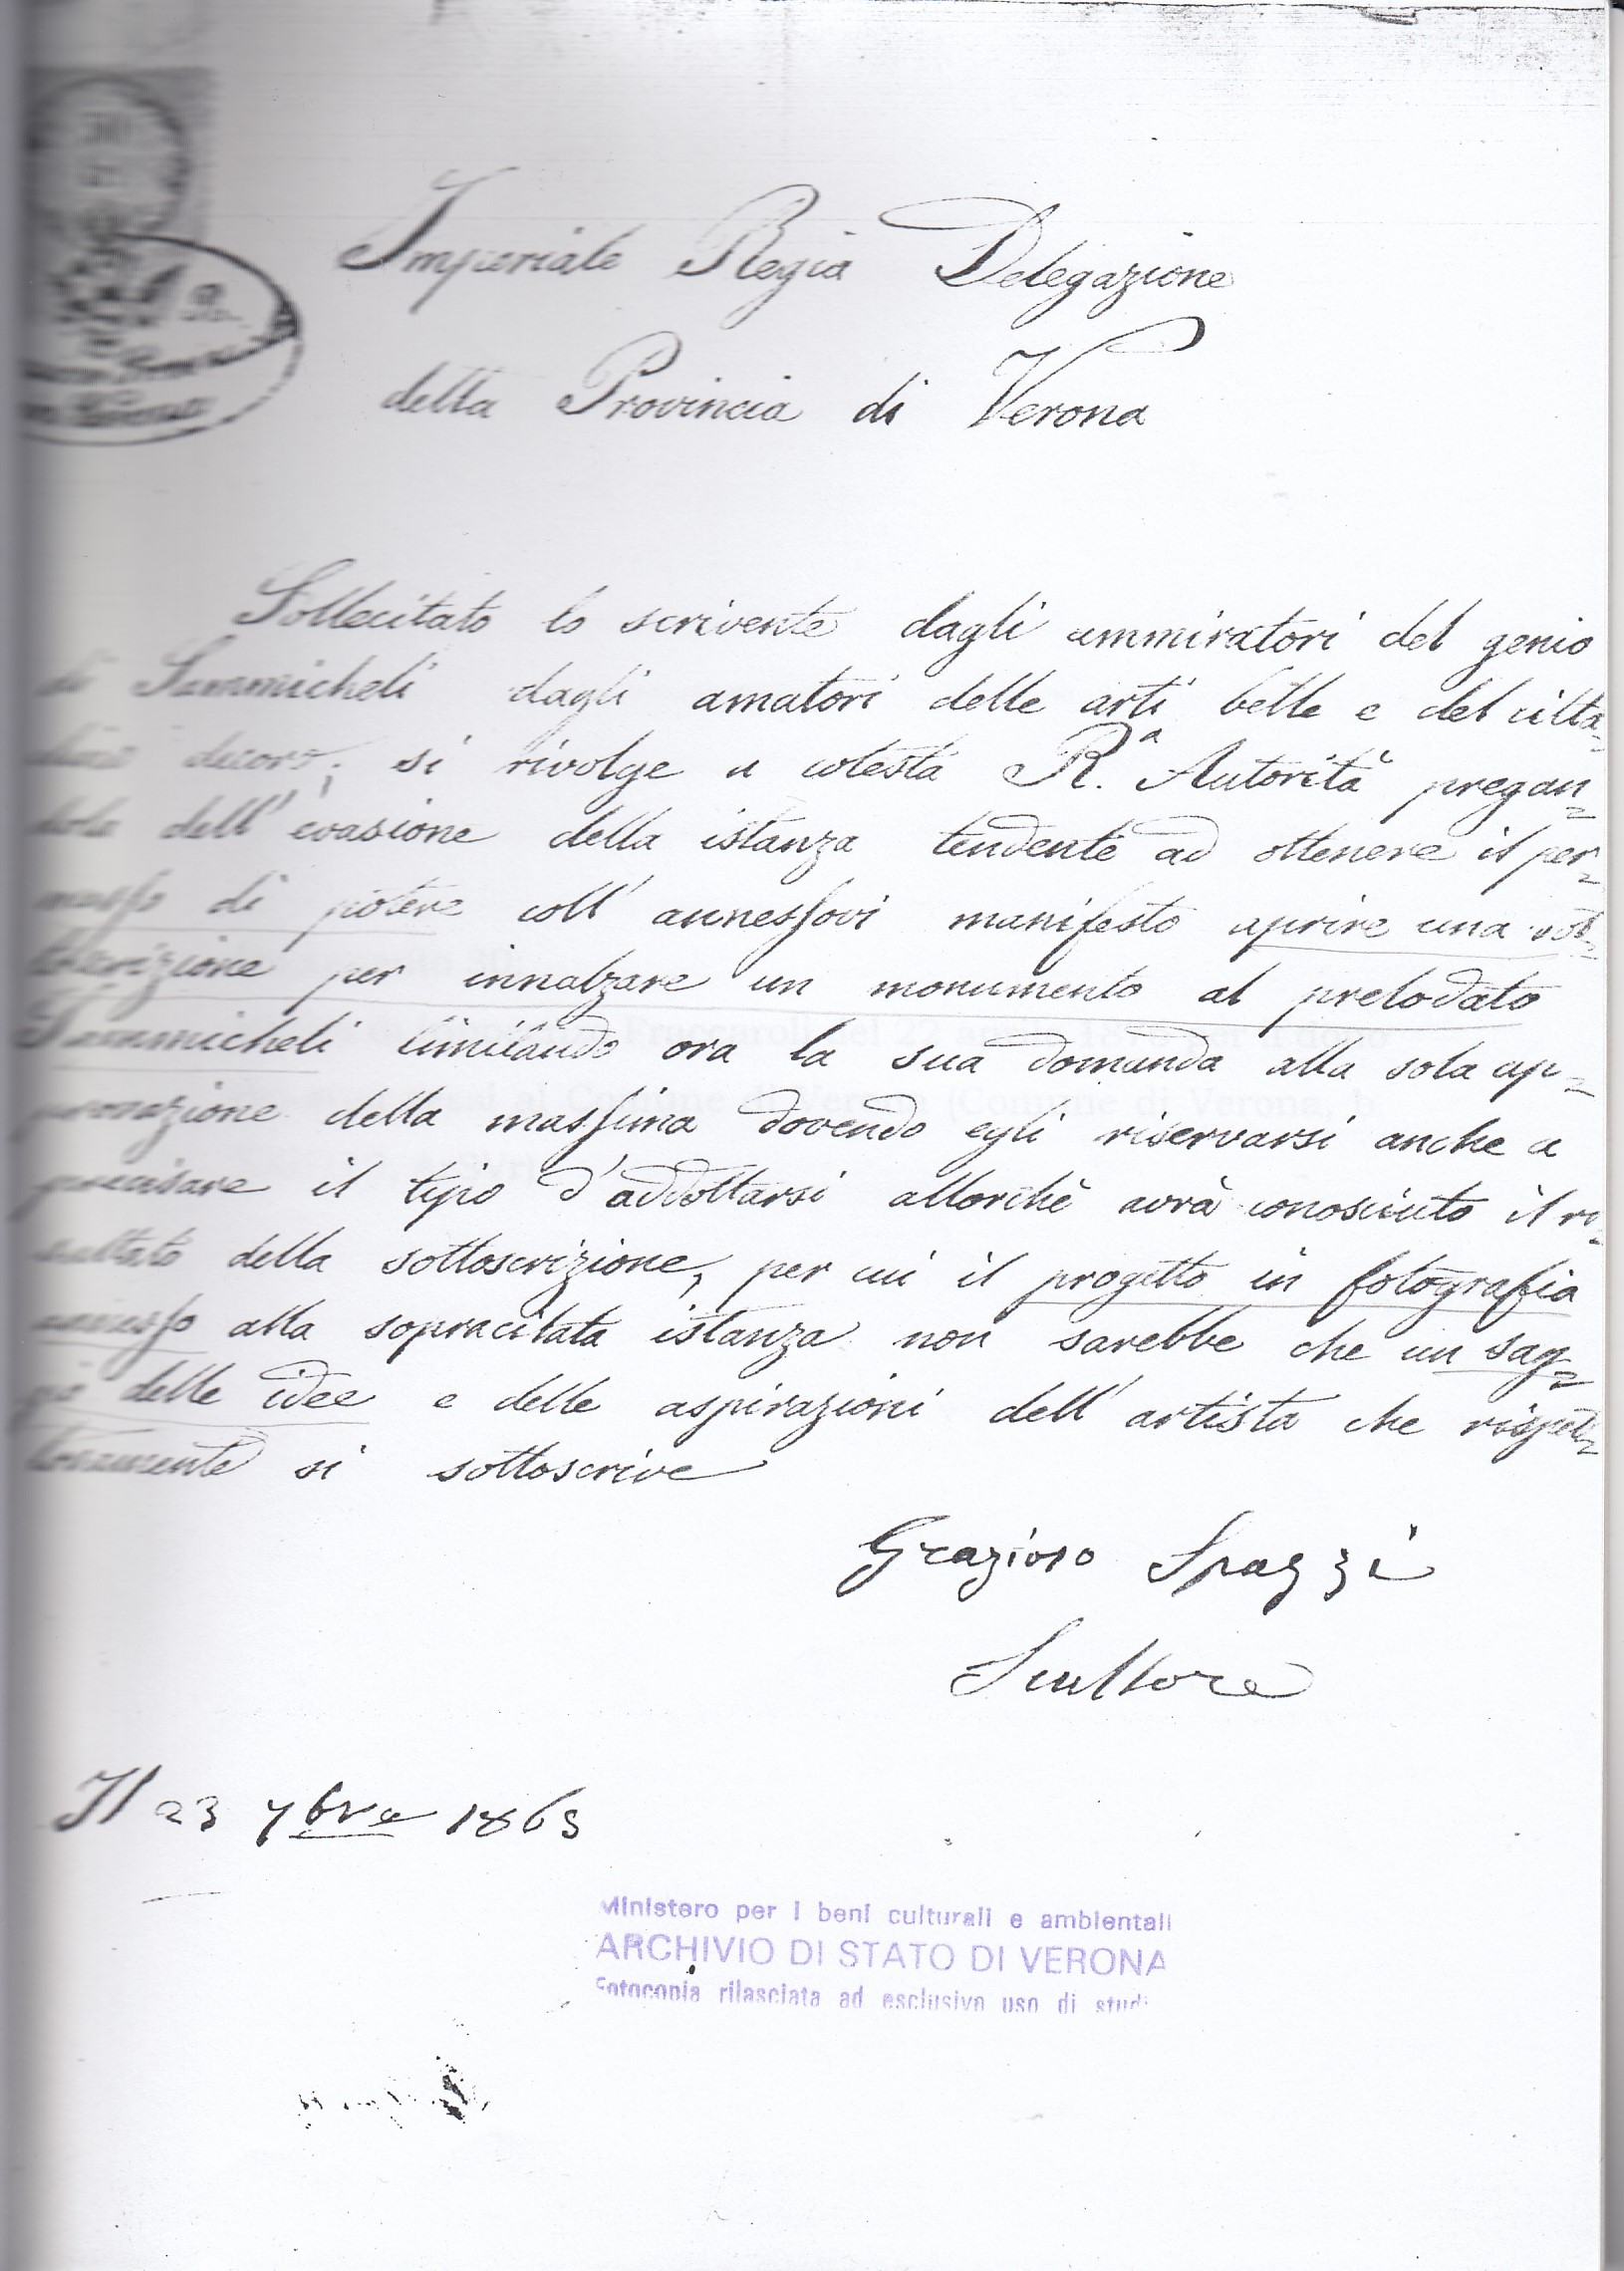 Imperiale Regia Delegazione
della Provincia di Verona
Sollecitato lo scrivente dagli ammiratori del genio
di Sammicheli dagli amatori delle arti belle e del citta-
dino decoro; si rivolge a cotesta R.ª Autorità pregan=
dola dell'evasione della istanza tendente ad ottenere il per=
messo di potere coll'annessovi manifesto aprire una sot=
toscrizione per innalzare un monumento al prelodato
Sammicheli limitando ora la sua domanda alla sola ap=
provazione della massima dovendo egli riservarsi anche a
precisare il tipo d'addottarsi allorchè avrà conosciuto il ri=
sultato della sottoscrizione, per cui il progetto in fotografia
annesso alla sopracitata istanza non sarebbe che un sag=
gio delle idee e delle aspirazioni dell'artista che rispet=
tosamente si sottoscrive
Grazioso Spazzi
Scultore
Il 23 7bre 1863
Ministero per i beni culturali e ambientali
ARCHIVIO DI STATO DI VERONA
Fotocopia rilasciata ad esclusivo uso di studi